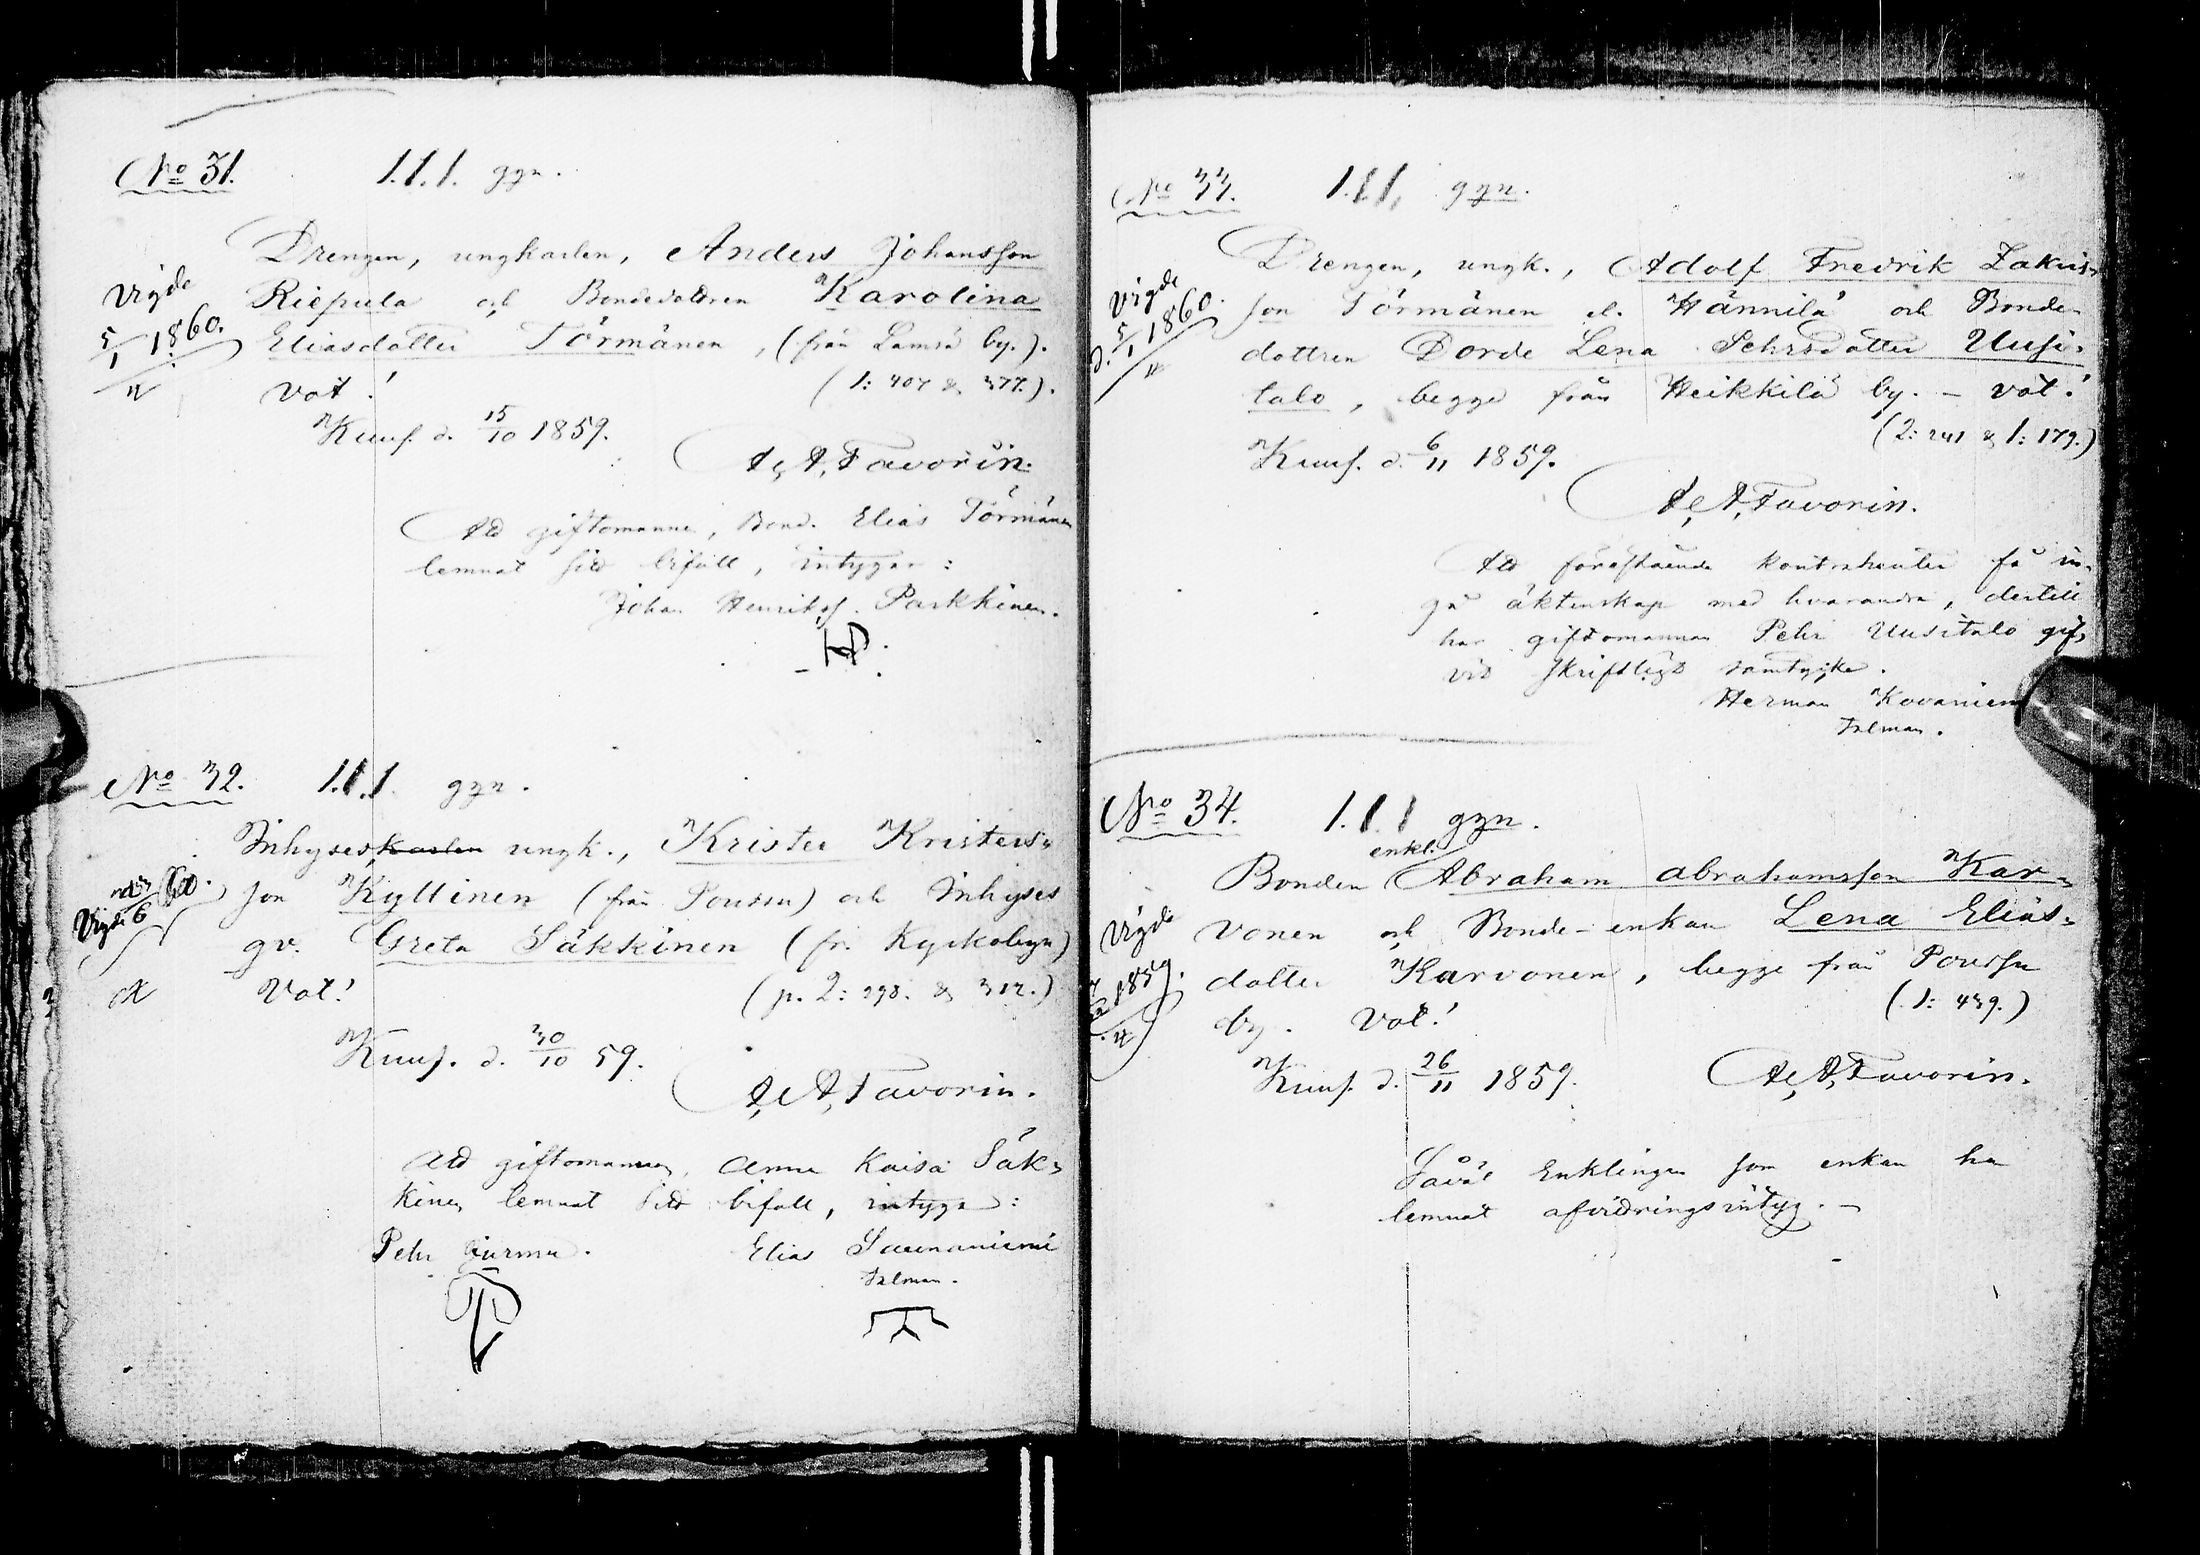 No 31. 1.1.1. ggn.
Drengen, ungkarlen, Anders Johansson
Riepula och Bondedottren Karolina
Eliasdotter Törmänen, (från Lamsä by.).
Vot! (1: 407 & 377.).
Kuus. d. 15/10 1859.
A. A. Favorin.
Vigde
5/1 1860.
Att giftomannen, Bond. Elias Törmänen
lemnat sitt bifall, intygar:
Johan Henrikss. Parkkinen.
No 32. 1.1.1. ggn.
Inhyseskarlen ungk., Krister Kristers-
son Kyllinen (från Poussu) och Inhyses
gv. Greta Säkkinen (fr. Kyrkobyn)
Vot! (p. 2: 298. & 312.)
Kuus. d. 30/10 59.
A. A. Favorin.
Vigde 6
Att giftomannen, Anna Kaisa Säk-
kinen lemnat sitt bifall, intyga:
Pehr
Elias Saunaniemi
Tolman.
No 33. 1.1.1. ggn.
Drengen, ungk., Adolf Fredrik Zakris-
son Törmänen el. Hännilä och Bonde-
dottren Dorde Lena Pehrsdotter Uusi-
talo, begge från Heikkilä by. - Vot!
(2: 241 & 1: 179.)
Kuus. d. 6/11 1859.
A. A. Favorin.
Vigde
d. 5/1 1860.
Att förestående kontrahenter få in-
gå äktenskap med hvarandra, dertill
har giftomannen Pehr Uusitalo gif-
vit skriftligt samtycke.
Herman Kovaniemi
Tolman.
No 34. 1.1.1 ggn.
enkl.
Bonden Abraham Abrahamsson Kar-
vonen och Bonde-enkan Lena Elias-
dotter Karvonen, begge från Poussu
by. Vot! (1: 439.)
Kuus. d. 26/11 1859. A. A. Favorin.
Vigde
1859.
Såväl Enklingen som enkan ha
lemnat afvittringsintyg. -